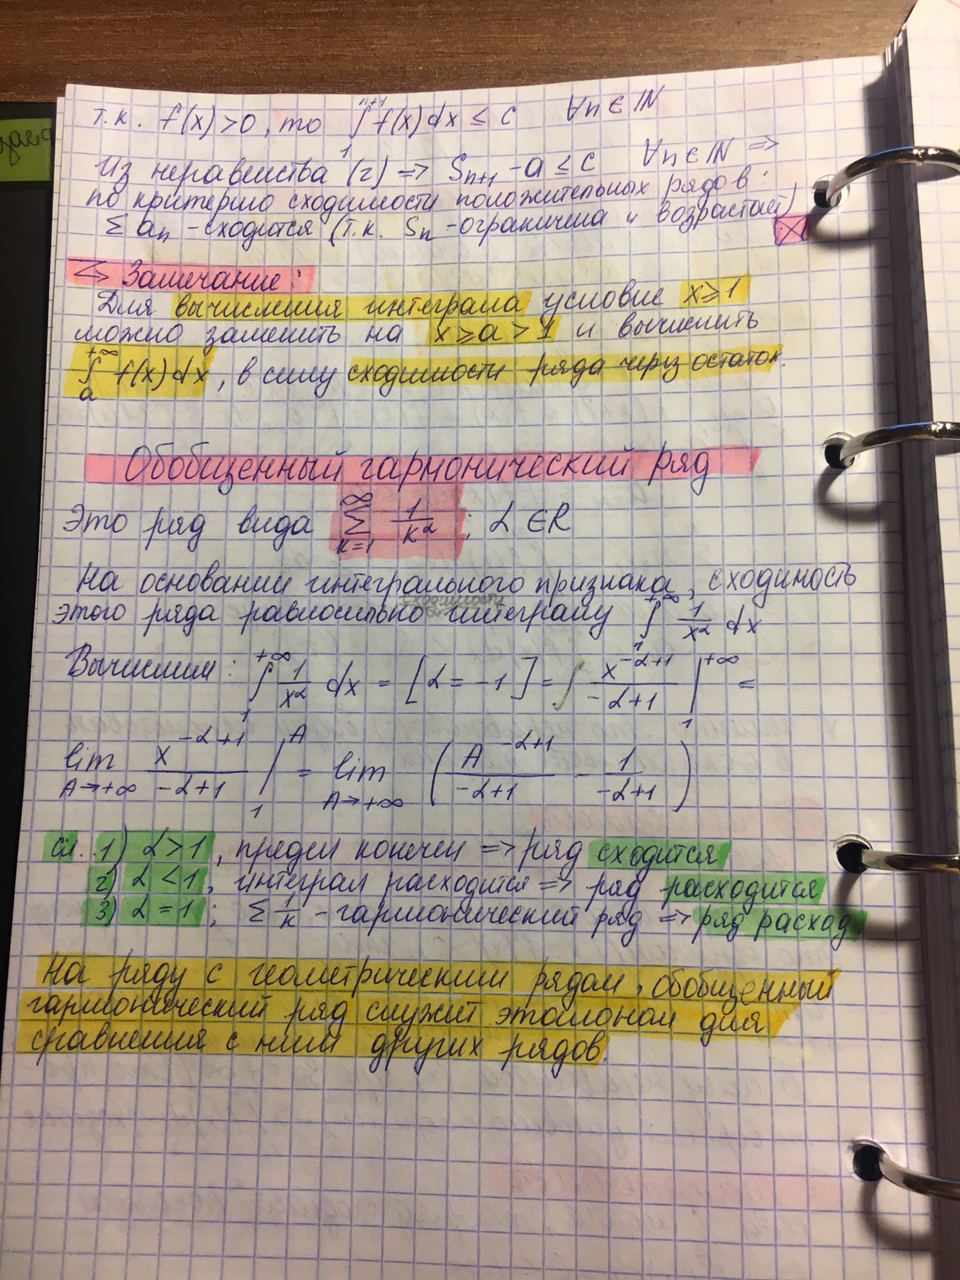 т.к. f(x) > 0, то ∫₁ⁿ⁺¹ f(x) dx ≤ C ∀n ∈ ℕ
Из неравенства (2) => Sₙ₊₁ - a ≤ C ∀n ∈ ℕ =>
по критерию сходимости положительных рядов:
Σ aₙ - сходится (т.к. Sₙ - ограничена и возрастает)
Замечание:
Для вычисления интеграла условие x ≥ 1
можно заменить на x ≥ a > 1 и вычислить
∫ₐ^{+∞} f(x) dx, в силу сходимости ряда через остаток.
Обобщенный гармонический ряд
Это ряд вида Σ_{k=1}^{∞} 1/k^α ; α ∈ R
На основании интегрального признака, сходимость
этого ряда равносильно интегралу ∫₁^{+∞} 1/x^α dx
Вычислим: ∫₁^{+∞} 1/x^α dx = [α = -1] = ∫ x^{-α+1}/(-α+1) |₁^{+∞} =
lim_{A→+∞} x^{-α+1}/(-α+1) |₁^A = lim_{A→+∞} (A^{-α+1}/(-α+1) - 1/(-α+1))
сл. 1) α > 1, предел конечен => ряд сходится
2) α < 1, интеграл расходится => ряд расходится
3) α = 1; Σ 1/k - гармонический ряд => ряд расход
На ряду с геометрическим рядом, обобщенный
гармонический ряд служит эталоном для
сравнения с ним других рядов.